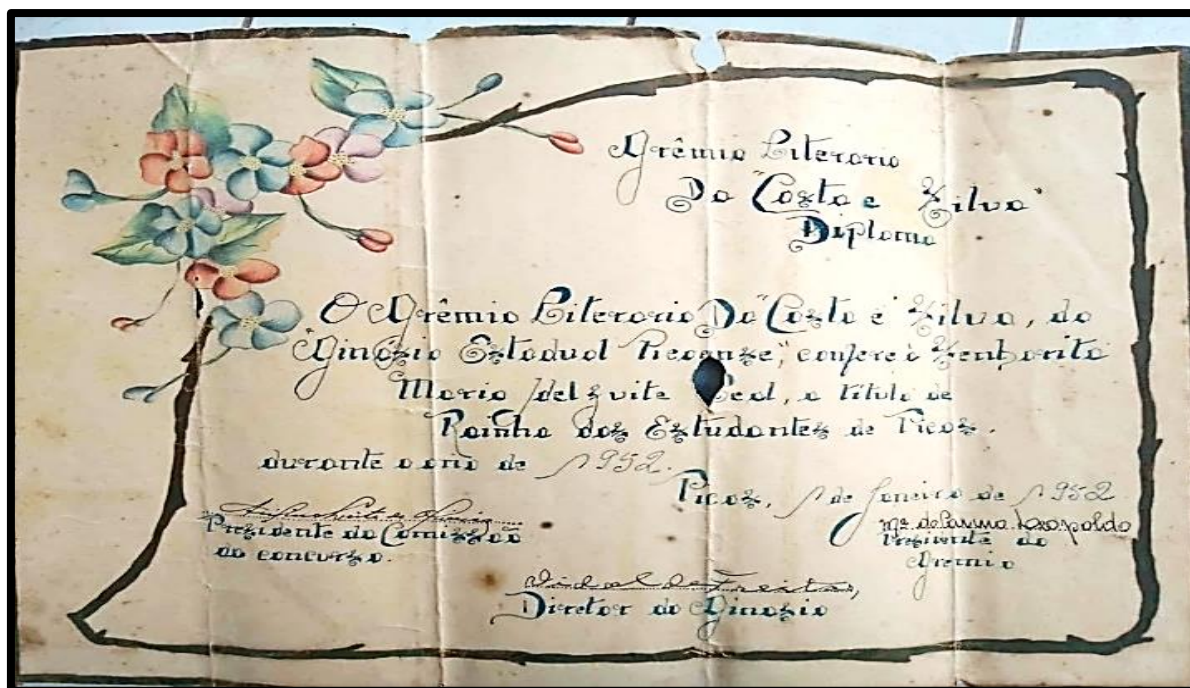 Grêmio Literario
Da "Costa e Silva"
Diploma
O Grêmio Literario Da "Costa e Silva, do
"Ginásio Estadual Picoense," confere à Senhorita
Maria Leal, o título de
Rainha dos Estudantes de Picos.
durante o ano de 1952.
Picos, 1 de Janeiro de 1952
Mª do Carmo Leopoldo
Presidente da Comissão
do concurso.
Presidente do
Gremio
Vidal de Freitas,
Diretor do Ginasio